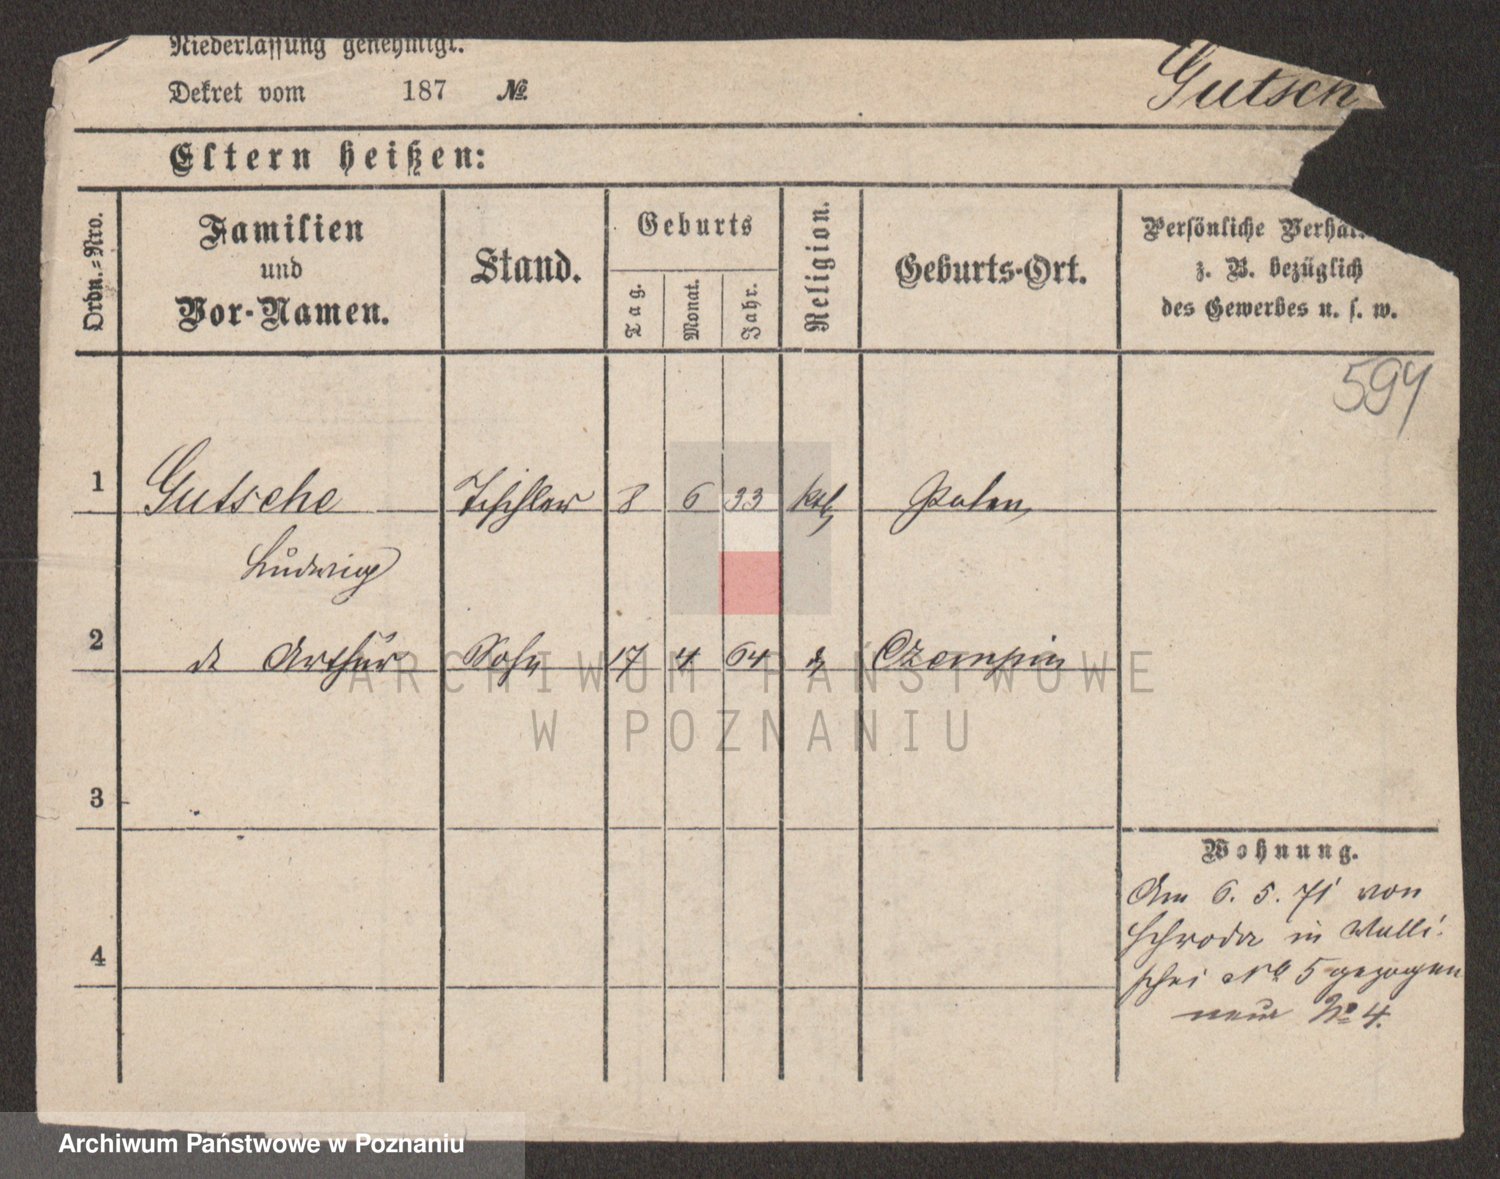 Niederlassung genehmigt.
Dekret vom 187 No.
Gutsch
Eltern heißen:
Ordn.-Nro.
Familien
und
Vor-Namen.
Stand.
Geburts
Tag.
Monat.
Jahr.
Religion.
Geburts-Ort.
Persönliche Verhäl
z. B. bezüglich
des Gewerbes u. s. w.
594
1 Gutsche Tischler 8 6 33 kath Posen
Ludwig
2 dt Arthur Sohn 17 4 64 Czempin
3
4
Wohnung.
Am 6. 5. 71 von
Schroda in Walli-
schei No 5 gezogen
neue No 4.
ARCHIWUM PAŃSTWOWE
W POZNANIU
Archiwum Państwowe w Poznaniu